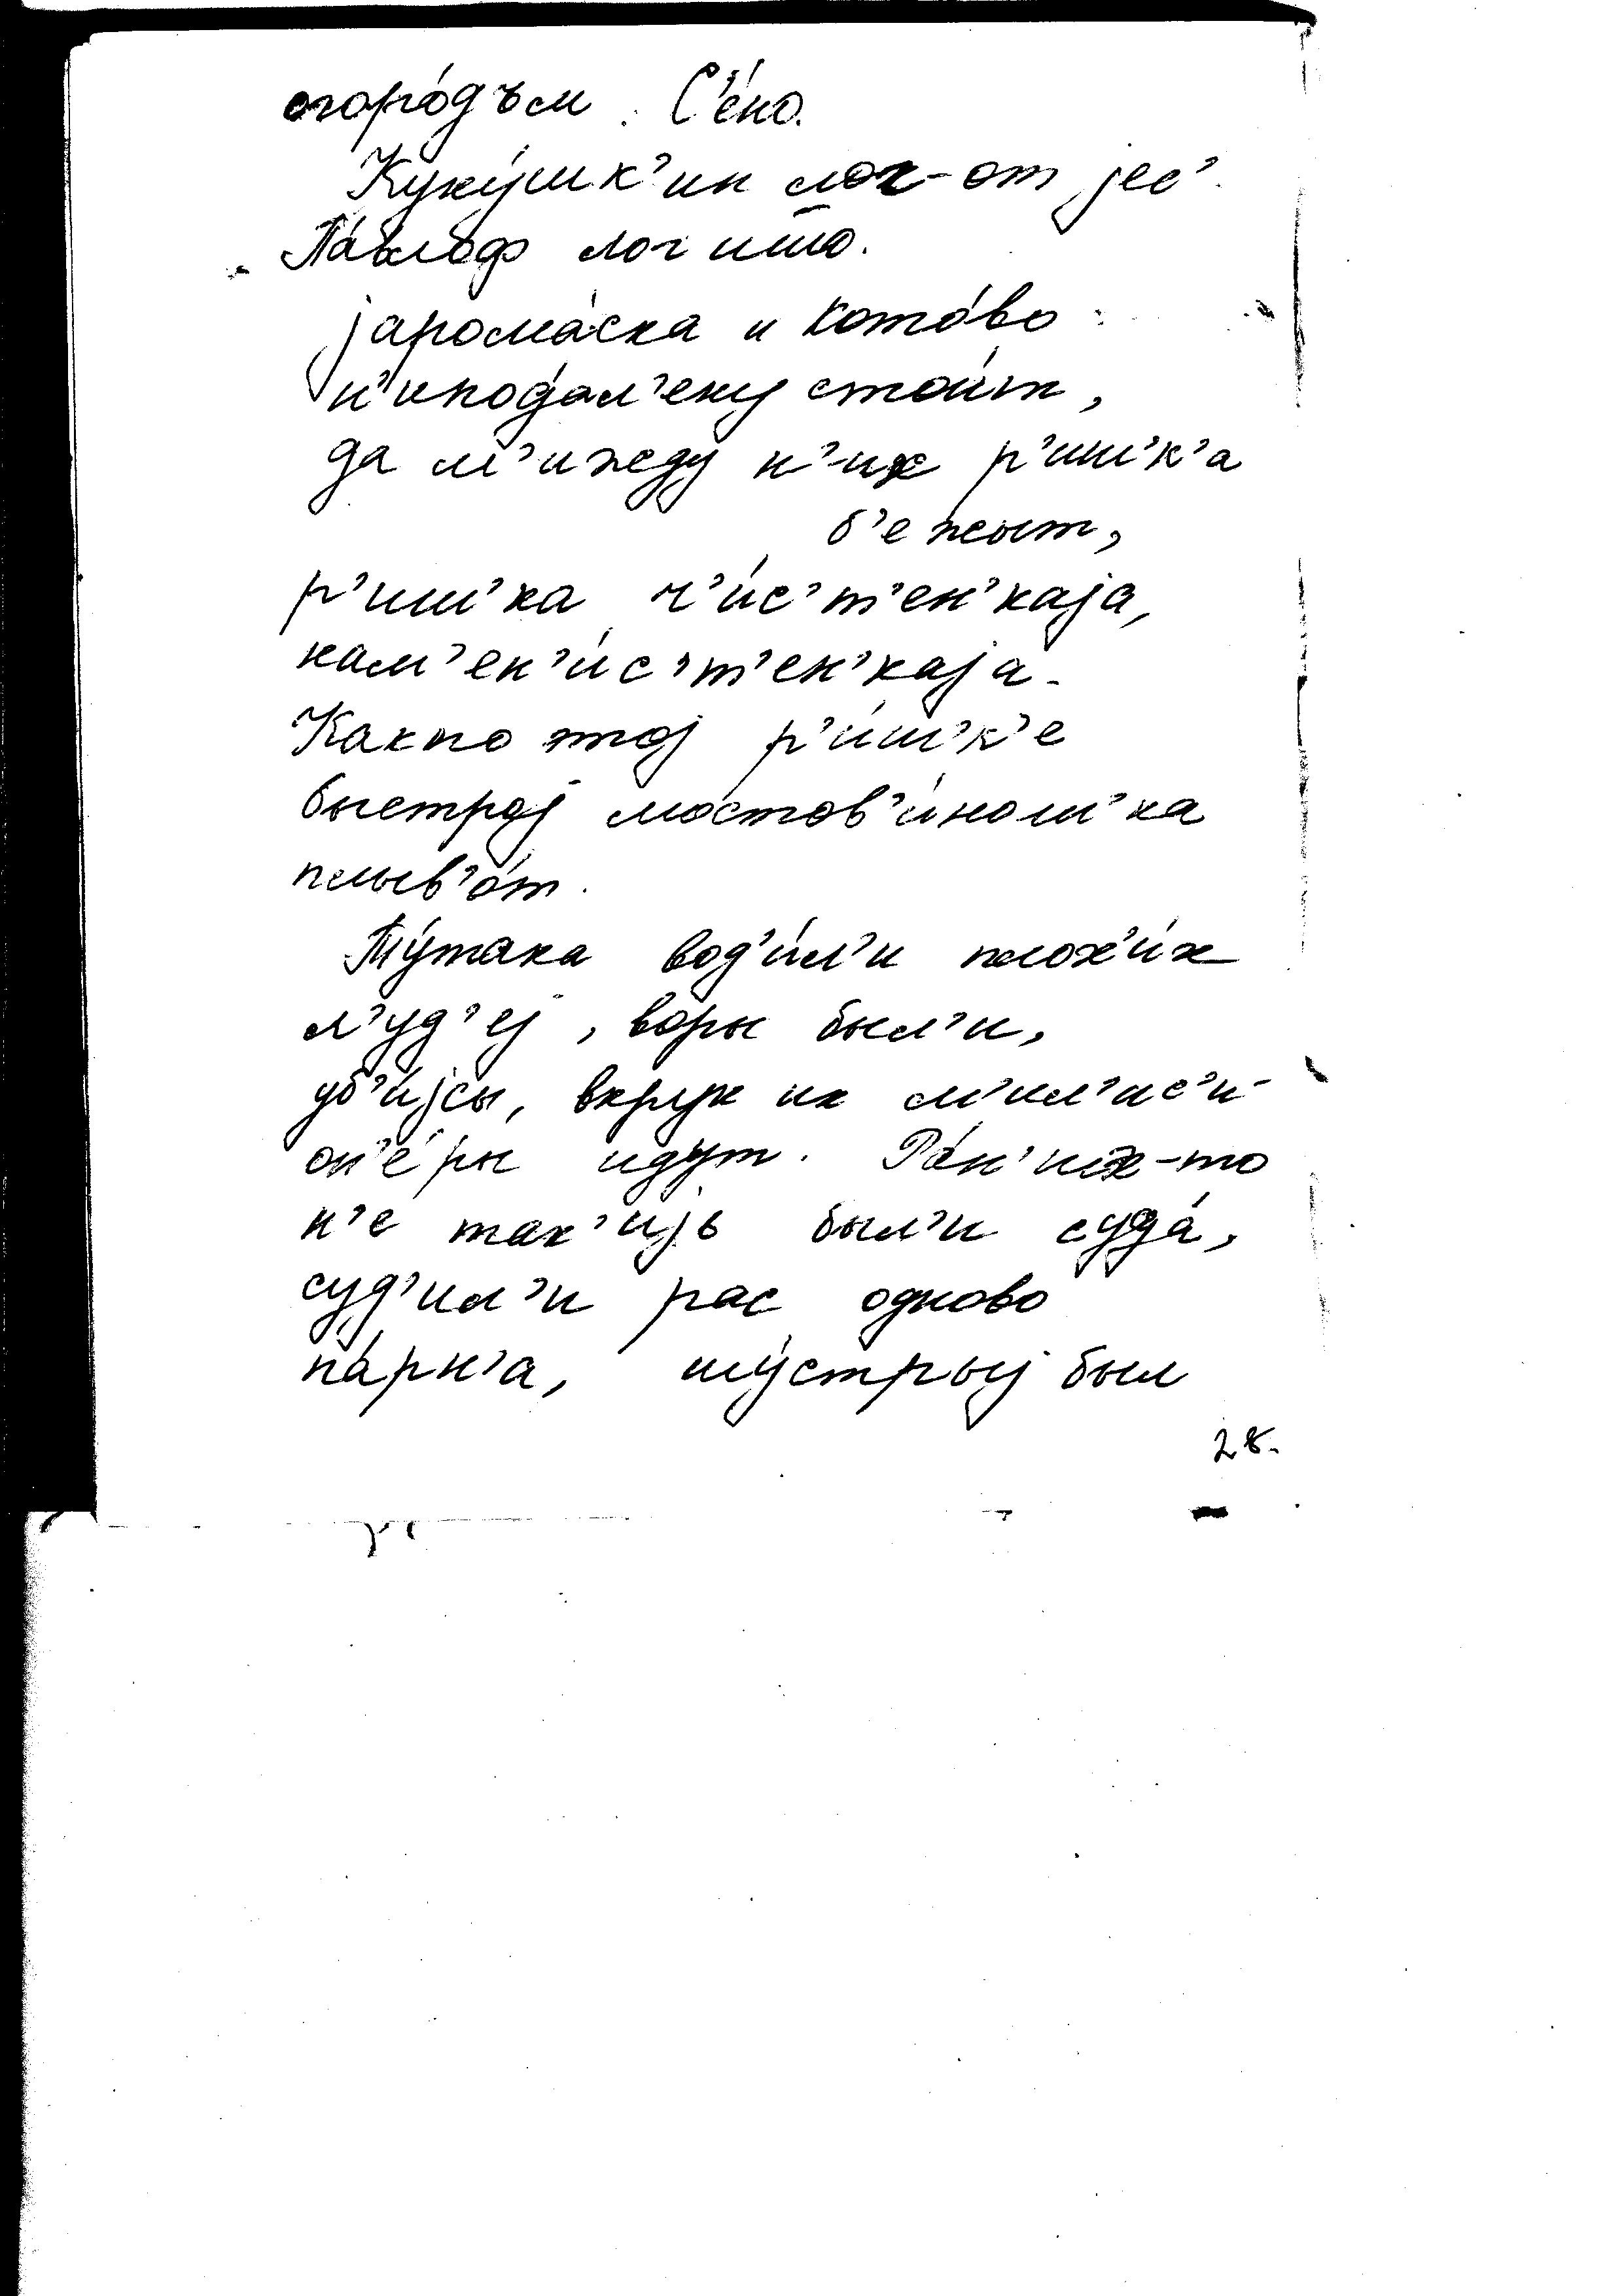 огоро́дъм. С'е́но.
Куку́шк'ин лог-от јес'.
Па́влоф лог што.
јарома́ска и Кото́во
н'иподал'еку стои́т,
да м'ижду н'их р'иш'к'а
б'ежыт,
р'иш'ка ч'и́с'т'ен'каја,
кам'ен'и́с'т'ен'каја.
Как по той р'и́ш'к'е
быстрој мостов'и́ноч'ка
плыв'о́т.
Ту́така вод'и́л'и плох'и́х
л'уд'еј, воры был'и,
уб'и́јсы, вкрук их м'ил'ис'и-
он'е́ры идут. Ра́н'ше-то
н'е так'ијь был'и суда́,
суд'ил'и рас одново
па́рн'а, шу́строј был
28.